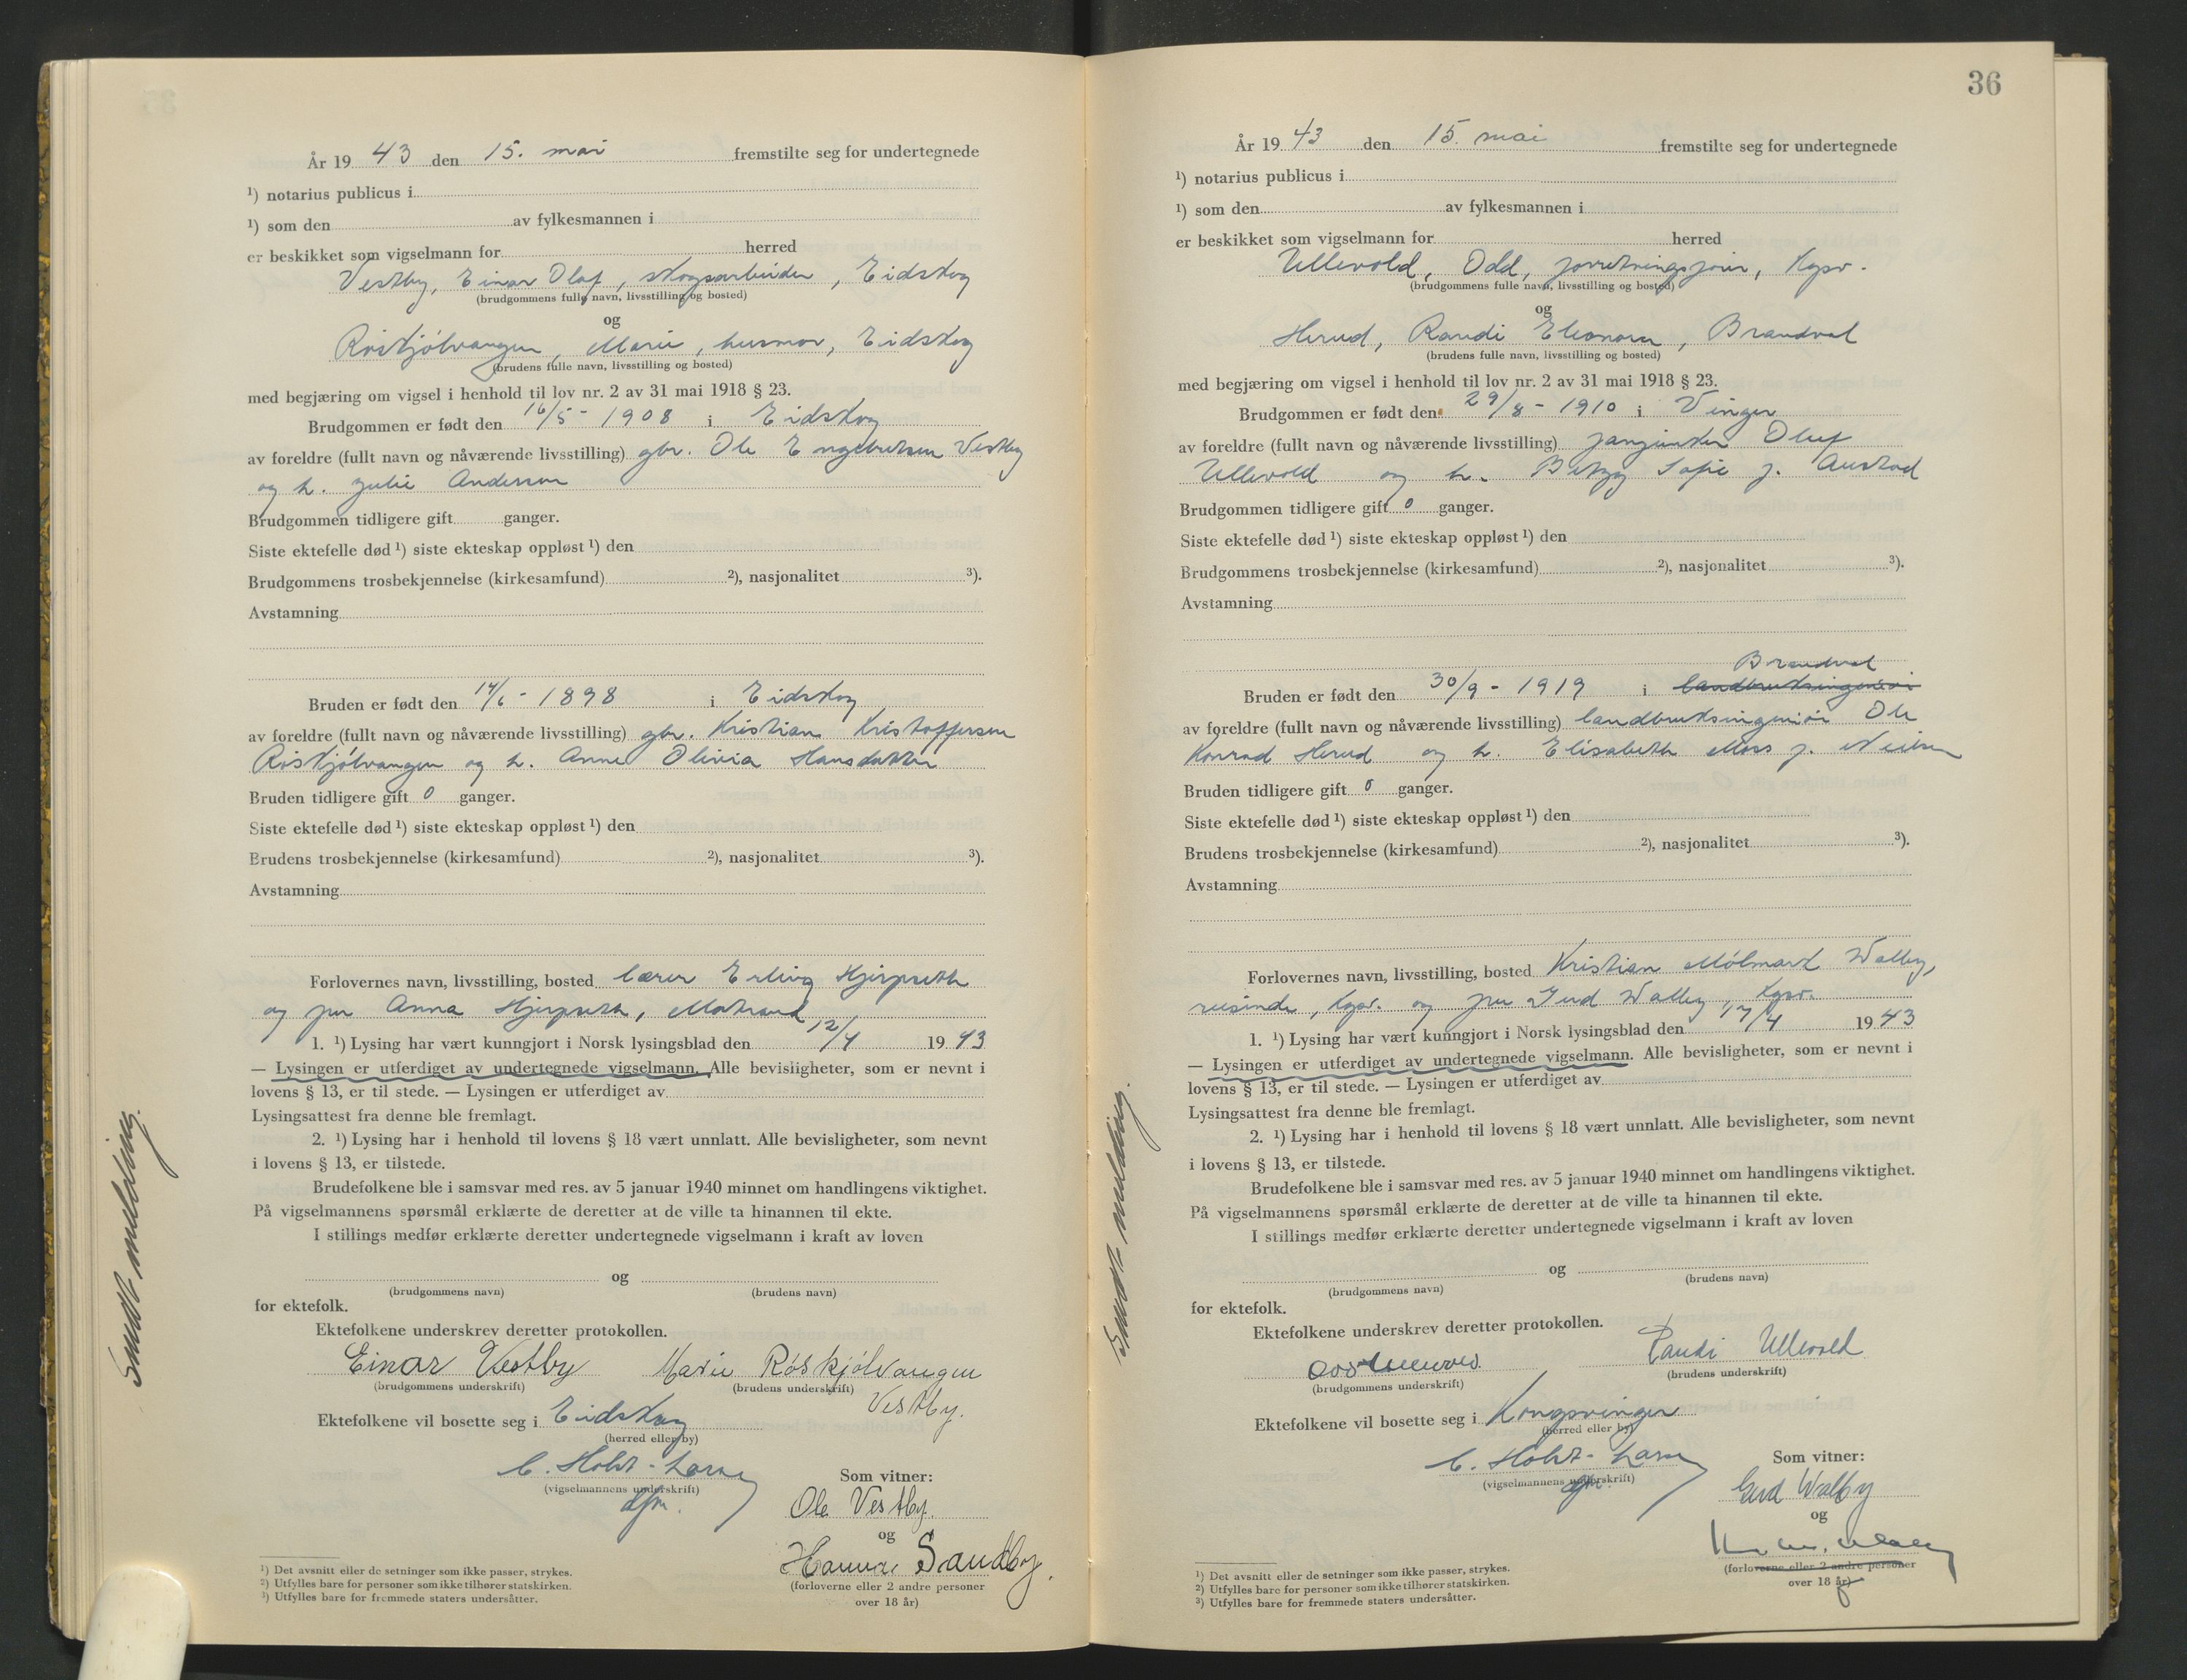 År 19 43 den 15. mai fremstilte seg for undertegnede
¹) notarius publicus i
¹) som den av fylkesmannen i
er beskikket som vigselmann for herred
Vestby, Einar Olaf, skogsarbeider, Eidskog
(brudgommens fulle navn, livsstilling og bosted)
og
Röskjölvangen, Marie, husmor, Eidskog
(brudens fulle navn, livsstilling og bosted)
med begjæring om vigsel i henhold til lov nr. 2 av 31 mai 1918 § 23.
Brudgommen er født den 16/5 - 1908 i Eidskog
av foreldre (fullt navn og nåværende livsstilling) gbr. Ole Engebretsen Vestby
og h. Julie Andersen
Brudgommen tidligere gift ganger.
Siste ektefelle død ¹) siste ekteskap oppløst ¹) den
Brudgommens trosbekjennelse (kirkesamfund) ²), nasjonalitet ³).
Avstamning
Bruden er født den 14/6 - 1898 i Eidskog
av foreldre (fullt navn og nåværende livsstilling) gbr. Kristian Kristoffersen
Röskjölvangen og h. Anne Olivia Hansdatter
Bruden tidligere gift 0 ganger.
Siste ektefelle død ¹) siste ekteskap oppløst ¹) den
Brudens trosbekjennelse (kirkesamfund) ²), nasjonalitet ³).
Avstamning
Forlovernes navn, livsstilling, bosted lærer Erling Hjerpseth
og fru Anna Hjerpseth, Matrand
1. ¹) Lysing har vært kunngjort i Norsk lysingsblad den 12/4 19 43
— Lysingen er utferdiget av undertegnede vigselmann. Alle bevisligheter, som er nevnt i
lovens § 13, er til stede. — Lysingen er utferdiget av
Lysingsattest fra denne ble fremlagt.
2. ¹) Lysing har i henhold til lovens § 18 vært unnlatt. Alle bevisligheter, som nevnt
i lovens § 13, er tilstede.
Brudefolkene ble i samsvar med res. av 5 januar 1940 minnet om handlingens viktighet.
På vigselmannens spørsmål erklærte de deretter at de ville ta hinannen til ekte.
I stillings medfør erklærte deretter undertegnede vigselmann i kraft av loven
og
(brudgommens navn) (brudens navn)
for ektefolk.
Ektefolkene underskrev deretter protokollen.
Einar Vestby Marie Röskjölvangen
(brudgommens underskrift) (brudens underskrift)
Vestby.
Ektefolkene vil bosette seg i Eidskog
(herred eller by)
C. Holst-Larsen
(vigselmannens underskrift)
dfm.
Som vitner:
Ole Vestby.
og
Hanna Sandby.
(forloverne eller 2 andre personer
over 18 år)
¹) Det avsnitt eller de setninger som ikke passer, strykes.
²) Utfylles bare for personer som ikke tilhører statskirken.
³) Utfylles bare for fremmede staters undersåtter.
Sendt melding.
36
År 19 43 den 15. mai fremstilte seg for undertegnede
¹) notarius publicus i
¹) som den av fylkesmannen i
er beskikket som vigselmann for herred
Ullevold, Odd, forretningsfører, Kgsv.
(brudgommens fulle navn, livsstilling og bosted)
og
Herud, Randi Eleonora, Brandval
(brudens fulle navn, livsstilling og bosted)
med begjæring om vigsel i henhold til lov nr. 2 av 31 mai 1918 § 23.
Brudgommen er født den 29/8 - 1910 i Vinger
av foreldre (fullt navn og nåværende livsstilling) Oluf
Ullevold og h. Betzy Sofie f. Austad
Brudgommen tidligere gift 0 ganger.
Siste ektefelle død ¹) siste ekteskap oppløst ¹) den
Brudgommens trosbekjennelse (kirkesamfund) ²), nasjonalitet ³).
Avstamning
Brandval
Bruden er født den 30/9 - 1919 i landbruksingeniör
av foreldre (fullt navn og nåværende livsstilling) landbruksingeniör Ole
Konrad Herud og h. Elisabeth Moss f. Neilsen
Bruden tidligere gift 0 ganger.
Siste ektefelle død ¹) siste ekteskap oppløst ¹) den
Brudens trosbekjennelse (kirkesamfund) ²), nasjonalitet ³).
Avstamning
Forlovernes navn, livsstilling, bosted Kristian Mölmark Walby,
reisende, Kgsv. og fru Gerd Walby, Kgsv.
1. ¹) Lysing har vært kunngjort i Norsk lysingsblad den 17/4 19 43
— Lysingen er utferdiget av undertegnede vigselmann. Alle bevisligheter, som er nevnt i
lovens § 13, er til stede. — Lysingen er utferdiget av
Lysingsattest fra denne ble fremlagt.
2. ¹) Lysing har i henhold til lovens § 18 vært unnlatt. Alle bevisligheter, som nevnt
i lovens § 13, er tilstede.
Brudefolkene ble i samsvar med res. av 5 januar 1940 minnet om handlingens viktighet.
På vigselmannens spørsmål erklærte de deretter at de ville ta hinannen til ekte.
I stillings medfør erklærte deretter undertegnede vigselmann i kraft av loven
og
(brudgommens navn) (brudens navn)
for ektefolk.
Ektefolkene underskrev deretter protokollen.
Odd Ullevold Randi Ullevold
(brudgommens underskrift) (brudens underskrift)
Ektefolkene vil bosette seg i Kongsvinger
(herred eller by)
C. Holst-Larsen
(vigselmannens underskrift)
dfm.
Som vitner:
Gerd Walby
og
(forloverne eller 2 andre personer
over 18 år)
¹) Det avsnitt eller de setninger som ikke passer, strykes.
²) Utfylles bare for personer som ikke tilhører statskirken.
³) Utfylles bare for fremmede staters undersåtter.
Sendt melding.